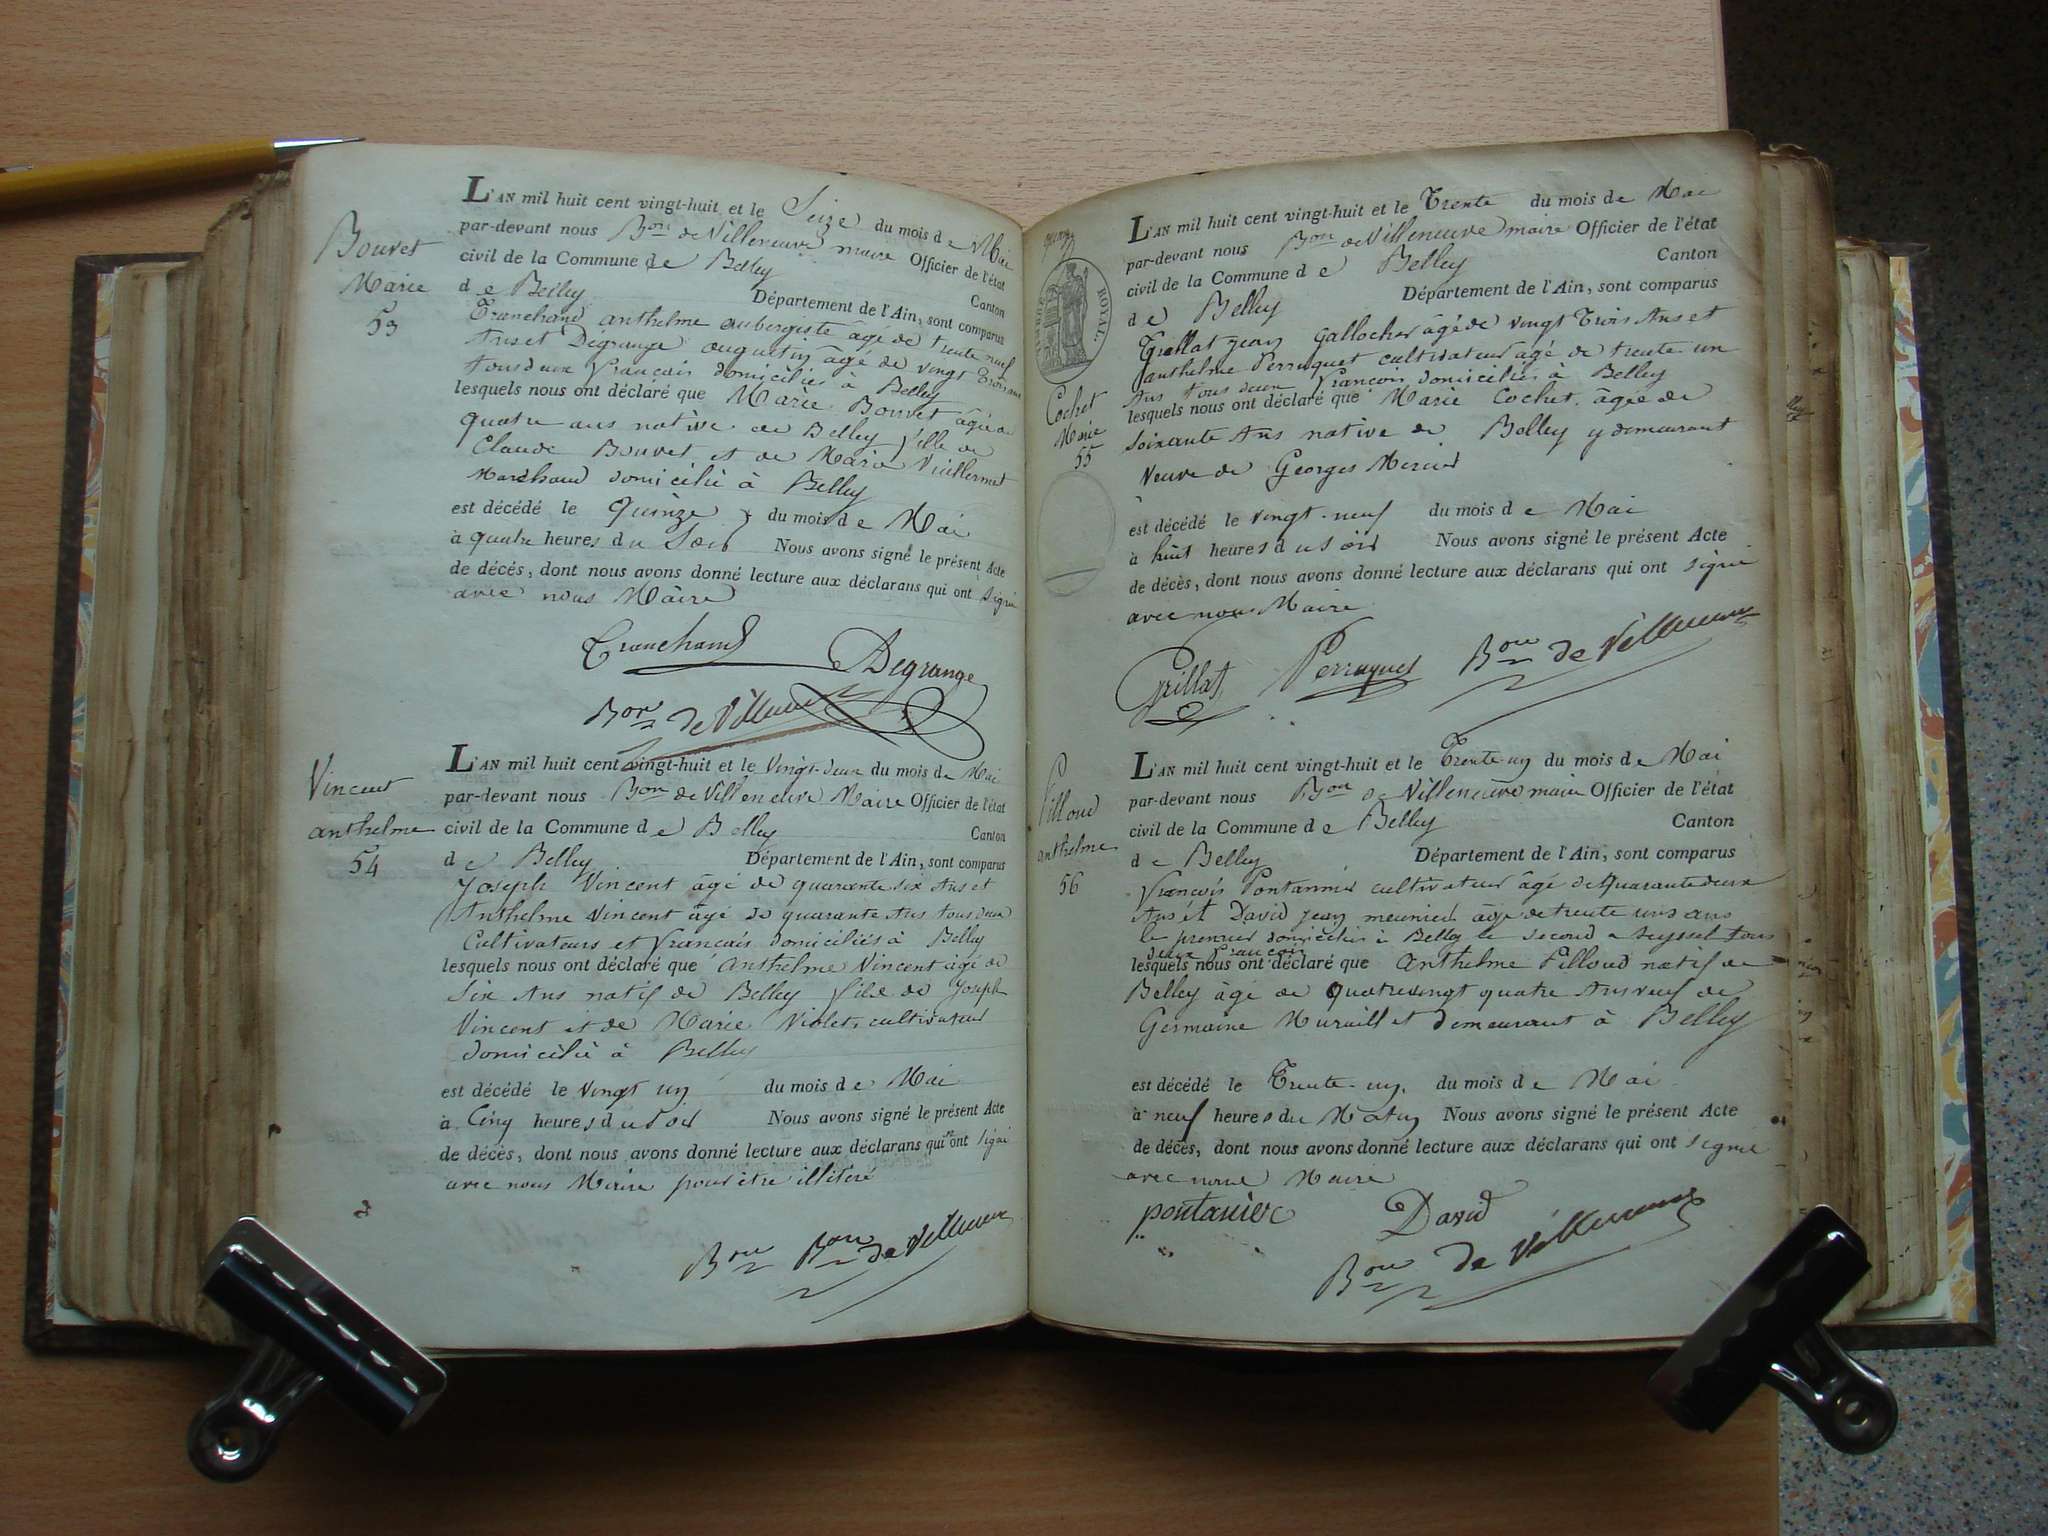 Bouvet
Marie
53
L'AN mil huit cent vingt-huit et le Seize du mois de Mai
par-devant nous Bon de Villeneuve maire Officier de l'état
civil de la Commune de Belley Canton
de Belley Département de l'Ain, sont comparus
Tranchand anthelme aubergiste âgé de trente neuf
Ans et Dégrange augustin âgé de vingt trois ans
tous deux français domiciliés à Belley
lesquels nous ont déclaré que Marie Bouvet âgée de
quatre ans native de Belley fille de
Claude Bouvet et de Marie Vuillermet
Marchand domicilié à Belley
est décédé le Quinze du mois de Mai
à quatre heures du Soir Nous avons signé le présent Acte
de décès, dont nous avons donné lecture aux déclarans qui ont signé
avec nous Maire
Tranchand ADegrange
Bon de Villeneuve
Vincent
anthelme
54
L'AN mil huit cent vingt-huit et le Vingt-deux du mois de Mai
par-devant nous Bon de Villeneuve Maire Officier de l'état
civil de la Commune de Belley Canton
de Belley Département de l'Ain, sont comparus
Joseph Vincent âgé de quarante six Ans et
Anthelme Vincent âgé de quarante Ans tous deux
Cultivateurs et français domiciliés à Belley
lesquels nous ont déclaré que Anthelme Vincent âgé de
Six Ans natif de Belley fils de Joseph
Vincent et de Marie Violet, cultivateur
domicilié à Belley
est décédé le vingt un du mois de Mai
à Cinq heures du Soir Nous avons signé le présent Acte
de décès, dont nous avons donné lecture aux déclarans qui n'ont signé
avec nous Maire pour être illiteré
Bon Bon de Villeneuve
ROYAL.
Cochet
Marie
55
L'AN mil huit cent vingt-huit et le Trente du mois de Mai
par-devant nous Bon de Villeneuve maire Officier de l'état
civil de la Commune de Belley Canton
de Belley Département de l'Ain, sont comparus
Grillat jean Gallocher âgé de vingt Trois Ans et
anthelme Perruquet cultivateur âgé de trente un
Ans tous deux français domiciliés à Belley
lesquels nous ont déclaré que Marie Cochet âgée de
soixante Ans native de Belley y demeurant
Veuve de Georges Mercier
est décédé le vingt-neuf du mois de Mai
à huit heures du soir Nous avons signé le présent Acte
de décès, dont nous avons donné lecture aux déclarans qui ont signé
avec nous Maire
Grillat Perruquet Bon de Villeneuve
Pilloud
anthelme
56
L'AN mil huit cent vingt-huit et le Trente-un du mois de Mai
par-devant nous Bon de Villeneuve maire Officier de l'état
civil de la Commune de Belley Canton
de Belley Département de l'Ain, sont comparus
François Pontannier cultivateur âgé de Quarante deux
Ans et David jean meunier âgé de trente uns ans
le premier domicilié à Belley le second a seyssel tous
deux français
lesquels nous ont déclaré que Anthelme Pilloud natif de
Belley âgé de Quatrevingt quatre Ans veuf de
Germaine Muraill et demeurant à Belley
est décédé le Trente-un du mois de Mai
à neuf heures du Matin Nous avons signé le présent Acte
de décès, dont nous avons donné lecture aux déclarans qui ont signé
avec nous Maire
pontanier David
Bon de Villeneuve